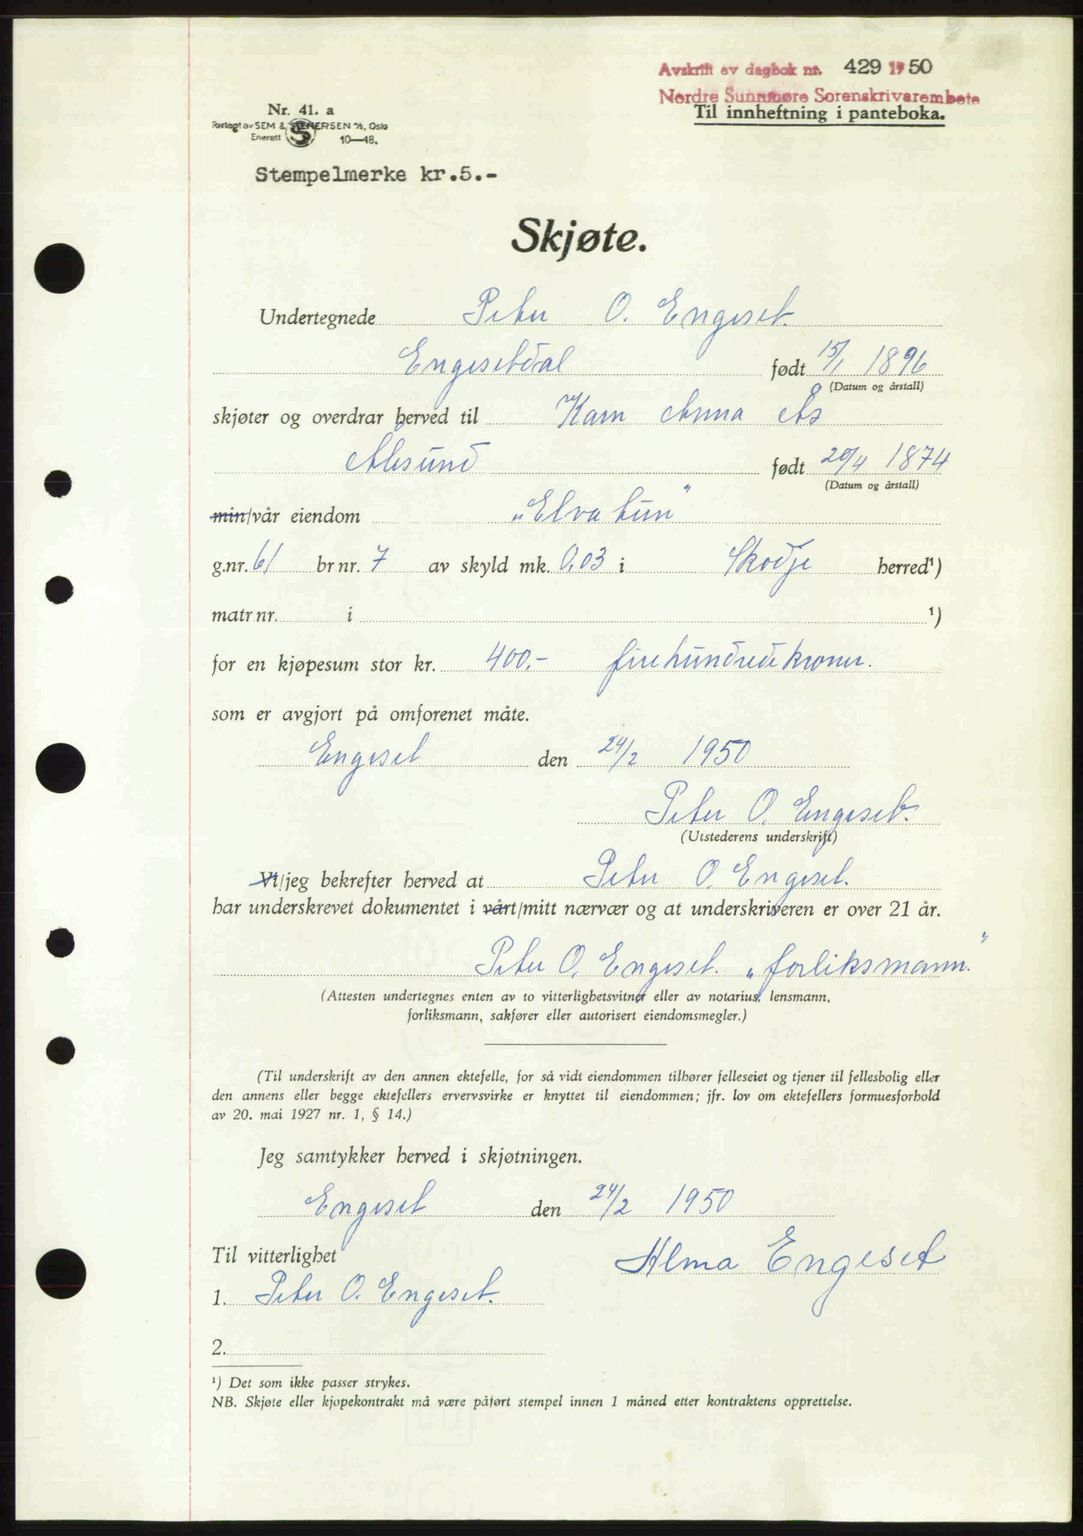 Avskrift av dagbok nr. 429 1950
Nordre Sunnmøre Sorenskrivarembete
Til innheftning i panteboka.
Nr. 41. a
Forlagt av SEM & STENERSEN A/S, Oslo
Enerett 10—48.
Stempelmerke kr.5.-
Skjøte.
Undertegnede Peter O. Engeset.
Engesetdal født 15/1 1896
(Datum og årstall)
skjøter og overdrar herved til Karn Anna Ås
Ålesund født 20/4 1874
(Datum og årstall)
min/vår eiendom „Elvatun”
g.nr. 61 br nr. 7 av skyld mk. 0,03 i Skodje herred¹)
matr nr. i ¹)
for en kjøpesum stor kr. 400.- firehundredekroner.
som er avgjort på omforenet måte.
Engeset den 24/2 1950
Peter O. Engeset.
(Utstederens underskrift)
Vi/jeg bekrefter herved at Peter O. Engeset.
har underskrevet dokumentet i vårt/mitt nærvær og at underskriveren er over 21 år.
Peter O. Engeset. „forliksmann.”
(Attesten undertegnes enten av to vitterlighetsvitner eller av notarius, lensmann,
forliksmann, sakfører eller autorisert eiendomsmegler.)
(Til underskrift av den annen ektefelle, for så vidt eiendommen tilhører felleseiet og tjener til fellesbolig eller
den annens eller begge ektefellers ervervsvirke er knyttet til eiendommen; jfr. lov om ektefellers formuesforhold
av 20. mai 1927 nr. 1, § 14.)
Jeg samtykker herved i skjøtningen.
Engeset den 24/2 1950
Til vitterlighet Alma Engeset
1. Peter O. Engeset.
2.
¹) Det som ikke passer strykes.
NB. Skjøte eller kjøpekontrakt må være påført stempel innen 1 måned etter kontraktens opprettelse.